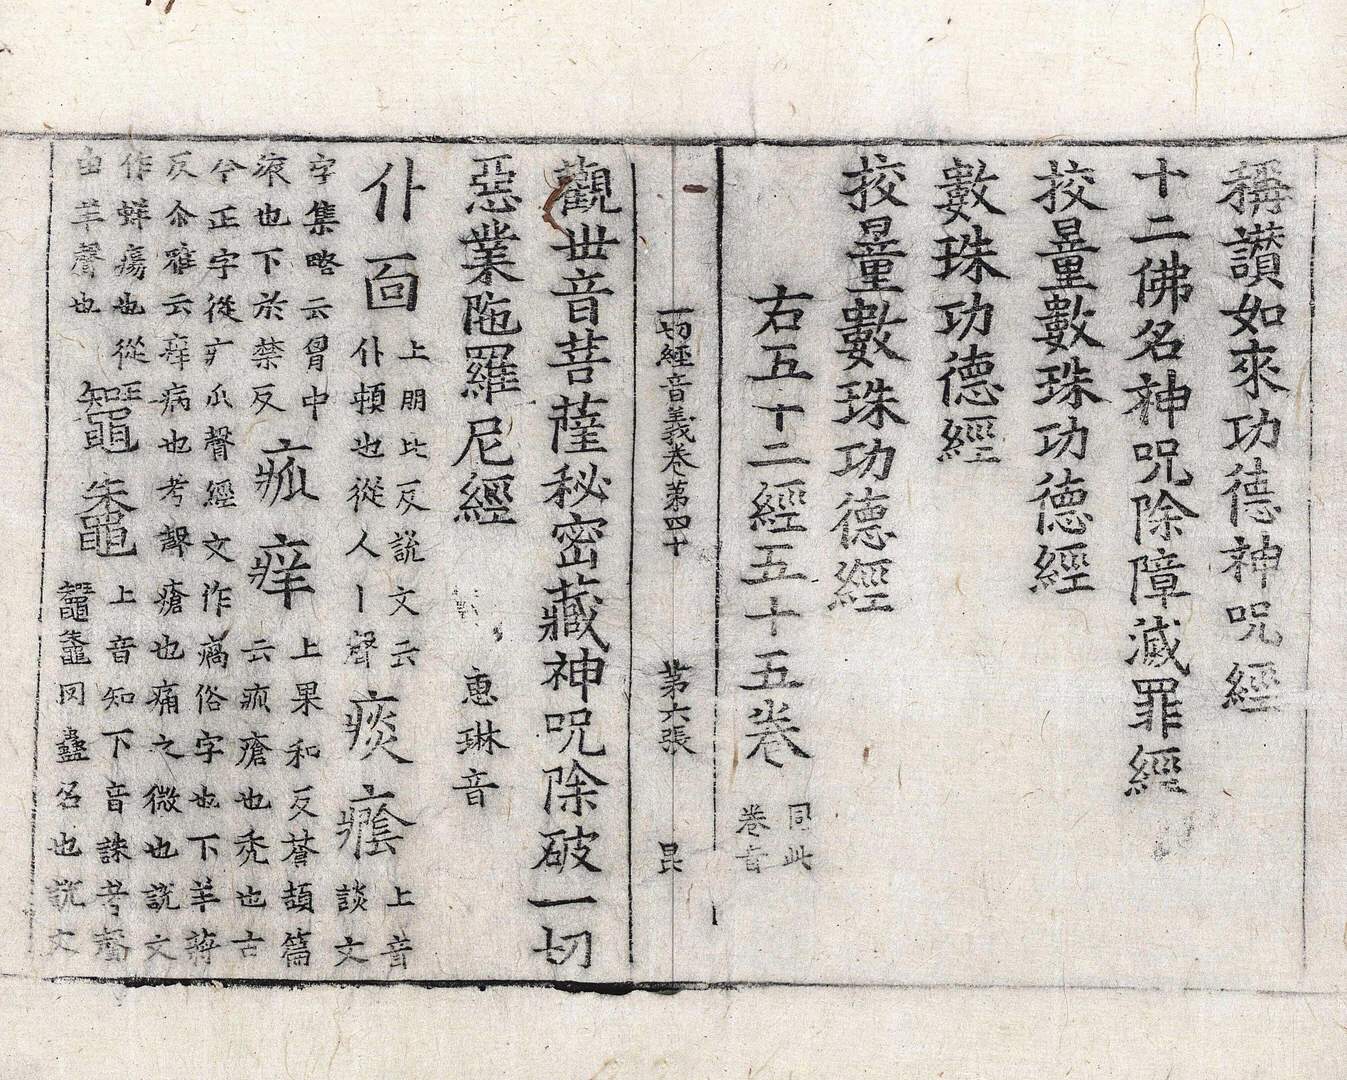 稱讃如來功德神呪經
十二佛名神呪除障滅罪經
挍量數珠功德經
數珠功德經
挍量數珠功德經
右五十二經五十五卷 同此卷音
一切經音義卷第四十 第六張 昆
觀世音菩薩秘密藏神呪除破一切
惡業陁羅尼經 惠琳音
仆面 上朋比反説文云
仆頓也從人卜聲 痰癊 上音
談文
字集略云胷中
液也下於禁反 疤痒 上果和反蒼頡篇
云疤瘡也秃也古
今正字從疒瓜聲經文作瘑俗字也下羊蔣
反尒雅云痒病也考聲瘡也痛之微也説文
作蛘瘍也從
虫羊聲也 鼅鼄 上音知下音誅考聲
鼅鼄罔蟲名也説文